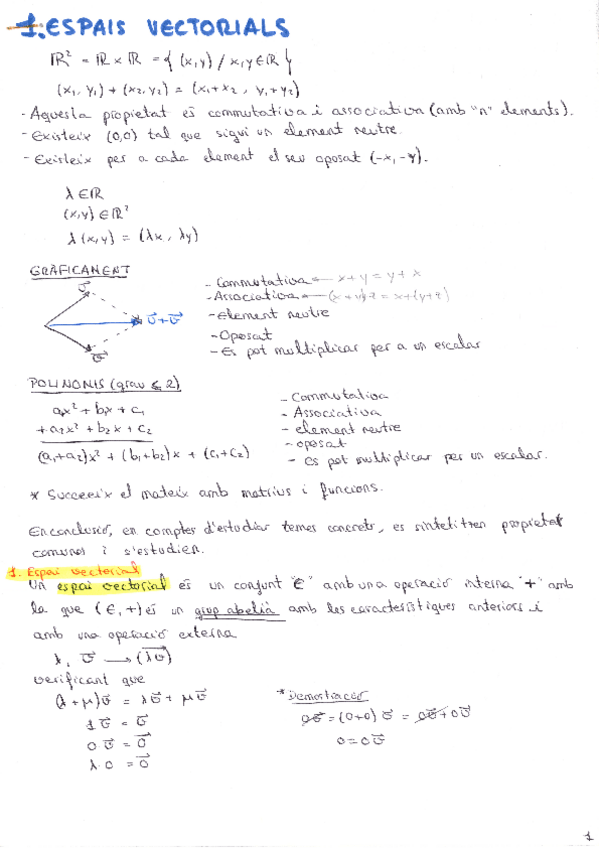 1. ESPAIS VECTORIALS
ℝ² = ℝ × ℝ = { (x,y) / x,y ∈ ℝ }
(x₁, y₁) + (x₂, y₂) = (x₁+x₂, y₁+y₂)
- Aquesta propietat és commutativa i associativa (amb "n" elements).
- Existeix (0,0) tal que sigui un element neutre.
- Existeix per a cada element el seu oposat (-x, -y).
λ ∈ ℝ
(x,y) ∈ ℝ²
λ(x,y) = (λx, λy)
GRÀFICAMENT
- Commutativa ← x+y = y+x
- Associativa ← (x+y)+z = x+(y+z)
- Element neutre
- Oposat
- Es pot multiplicar per a un escalar
POLINOMIS (grau ≤ 2)
a₁x² + b₁x + c₁
+ a₂x² + b₂x + c₂
(a₁+a₂)x² + (b₁+b₂)x + (c₁+c₂)
- Commutativa
- Associativa
- element neutre
- oposat
- es pot multiplicar per un escalar.
* Succeeix el mateix amb matrius i funcions.
En conclusió, en comptes d'estudiar temes concrets, es sintetitzen propietats
comunes i s'estudien.
1. Espai vectorial
Un espai vectorial és un conjunt "E" amb una operació interna "+" amb
la que (E,+) és un grup abelià amb les característiques anteriors i
amb una operació externa
λ, v⃗ → (λv⃗)
verificant que
(λ+μ)v⃗ = λv⃗ + μv⃗
1v⃗ = v⃗
0·v⃗ = 0⃗
λ·0 = 0⃗
* Demostració
0v⃗ = (0+0)v⃗ = 0v⃗ + 0v⃗
0 = 0v⃗
1